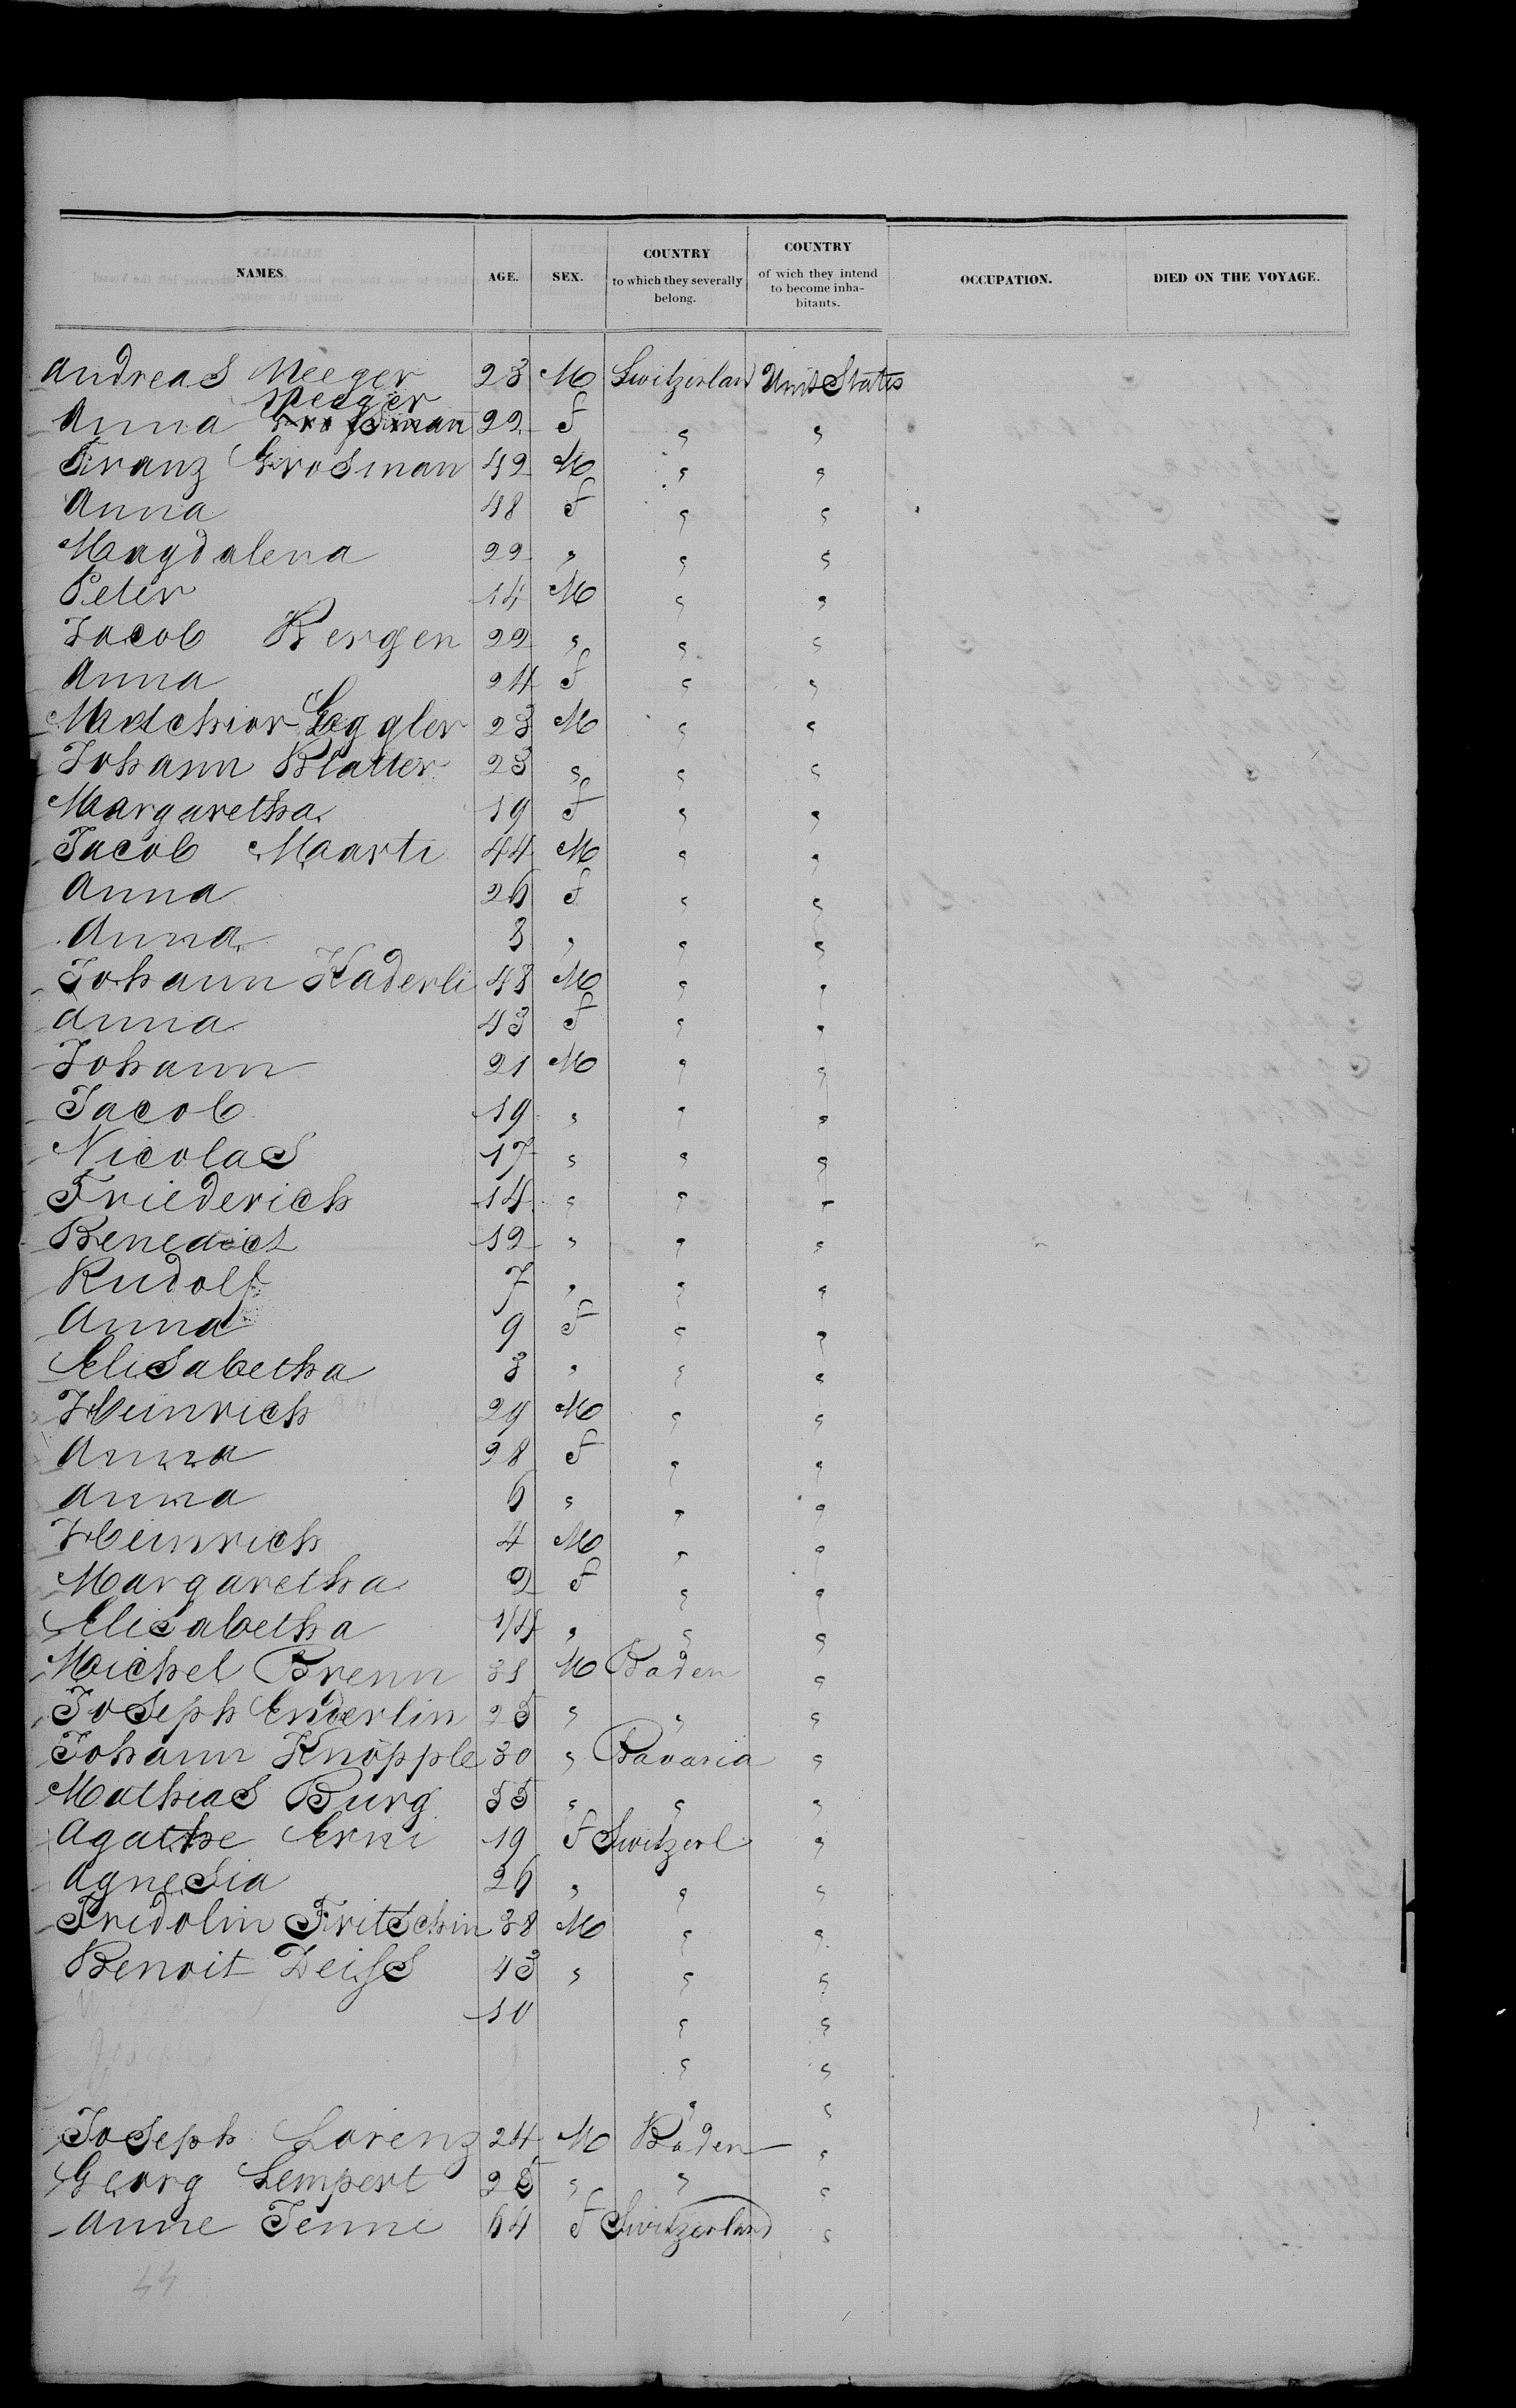 NAMES. AGE. SEX. COUNTRY to which they severally belong. COUNTRY of wich they intend to become inha-bitants. OCCUPATION. DIED ON THE VOYAGE.
Andreas Meeger 23 M Switzerland Unit States
Meeger
Anna Grossman 22 F " "
Franz Grosman 42 M " "
Anna 48 F " "
Magdalena 22 " " "
Peter 14 M " "
Jacob Bergen 22 " " "
Anna 24 F " "
Melchior Leggler 23 M " "
Johann Blatter 23 " " "
Margaretha 19 F " "
Jacob Maarti 44 M " "
Anna 26 F " "
Anna 3 " " "
Johann Kaderli 48 M " "
Anna 43 F " "
Johann 21 M " "
Jacob 19 " " "
Nicolas 17 " " "
Friederich 14 " " "
Benedict 12 " " "
Rudolf 7 " " "
Anna 9 F " "
Elisabetha 3 " " "
Heinrich 29 M " "
Anna 28 F " "
Anna 6 " " "
Heinrich 4 M " "
Margaretha 2 F " "
Elisabetha 1/4 " " "
Michel Brenn 31 M Baden "
Joseph Enderlin 25 " " "
Johann Knöpple 30 " Bavaria "
Mathias Burg 55 " " "
Agathe Erni 19 F Switzerl "
Agnesia 26 " " "
Fridolin Fritschin 38 M " "
Benoit Deiss 43 " " "
10 " "
" "
" "
Joseph Lorenz 24 M Baden "
Georg Lempert 25 " " "
Anne Jenni 64 F Switzerland "
44